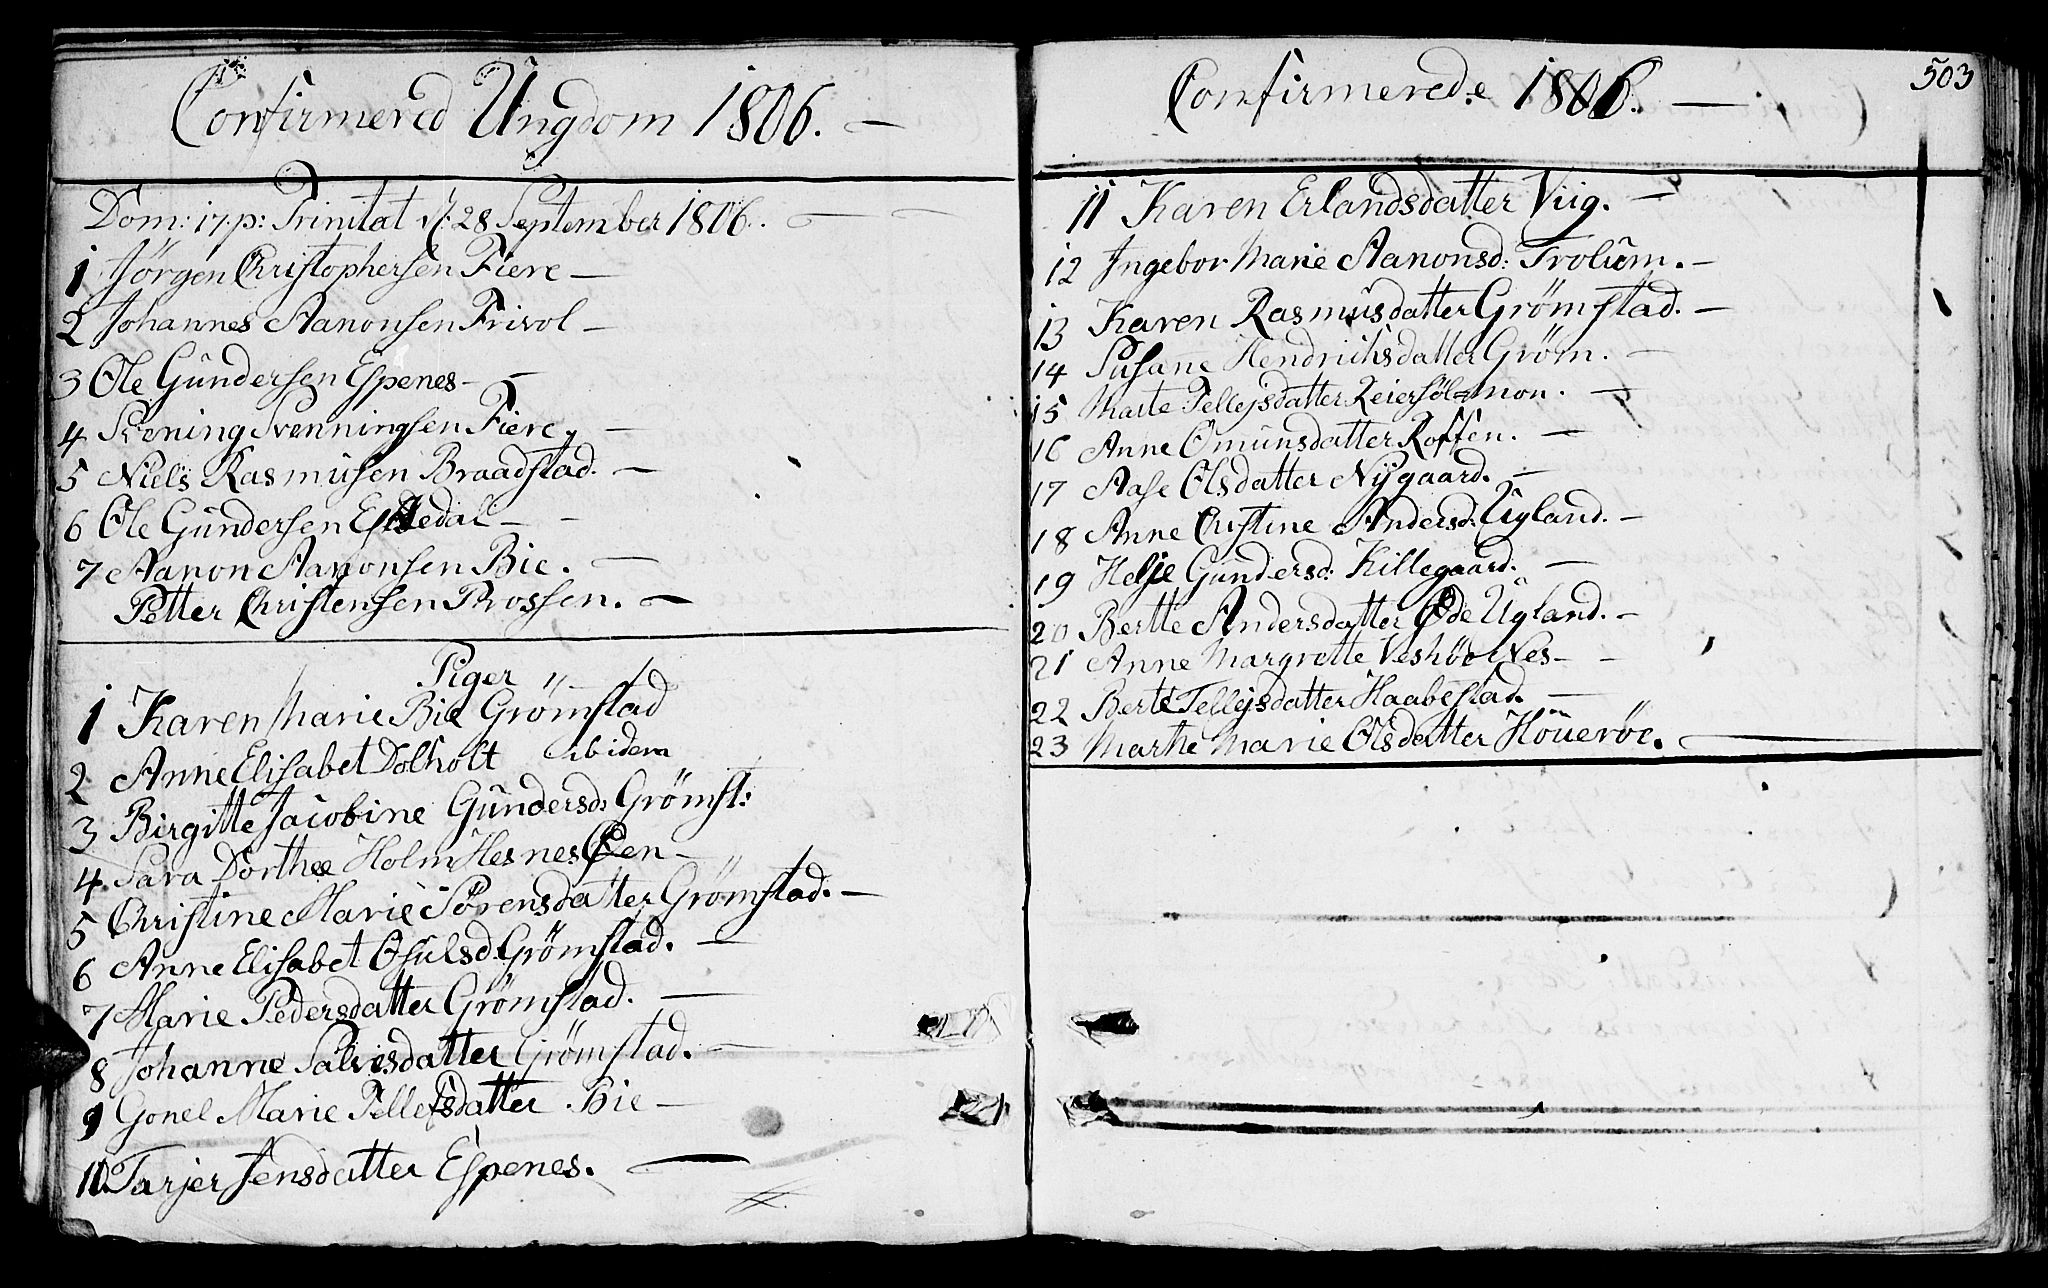 Confirmered Ungdom 1806. —
Dom: 17. p: Trinitat d: 28 September 1806. — —
1 Jörgen Christophersen Fiere —
2 Johannes Aanonsen Frivol —
3 Ole Gündersen Espenes — —
4 Svening Svenningsen Fiere, —
5 Niels Rasmusen Braadstad. —
6 Ole Gündersen Egedal — —
7 Aanon Aanonsen Bie. —
Petter Christensen Prossen. —
Piger "
1 Karen Marie Bie Grömstad
2 Anne Elisabet Dolholt ibidem
3 Birgitte Jacobine Gündersd: Grömst:
4. Sara Dorthee Holm Hesnes Øen —
5 Christine Marie Sörensdatter Grömstad. —
6 Anne Elisabet Osulsd. Grömstad. —
7 Marie Pedersdatter Grömstad. —
8 Johanne Salvesdatter Grömstad. —
9 Gonel Marie Tellefsdatter Bie —
10. Tarjer Jensdatter Espenes. —
Confirmerede 1806. —
503
11 Karen Erlandsdatter Viig. —
12 Ingebor Marie Aanonsd: Trolüm. —
13 Karen Rasmusdatter Grömstad. —
14 Susane Hendrichsdatter Gröm. —
15 Marte Tellejsdatter Reiersölmon. —
16 Anne Omünsdatter Roffen. —
17 Aase Olsdatter Nÿgaard. —
18 Anne Cristine Andersd: Ügland. —
19 Helje Gündersd: Killegaard. —
20 Bertte Andersdatter Øde Ügland. —
21 Anne Margrette Veshöe Nes — —
22 Berte Tellejsdatter Haabestad. —
23 Marthe Marie Olsdatter Höüeröe. —